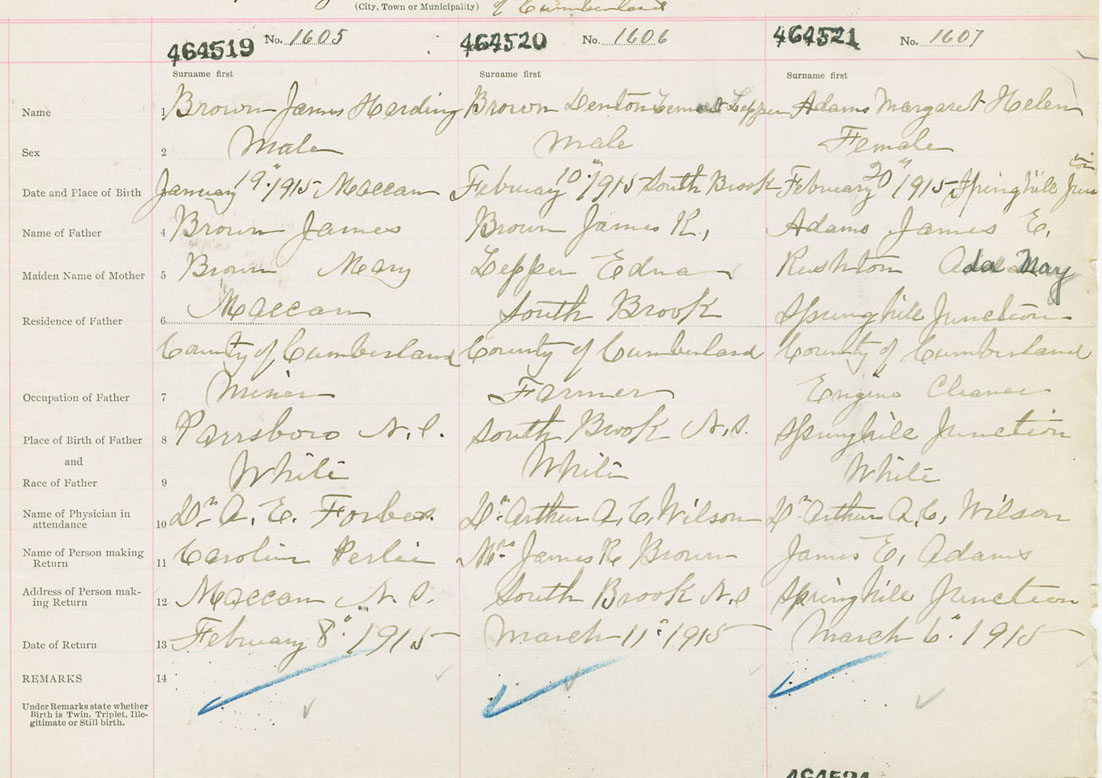 (City, Town or Municipality) of Cumberland
464519 No. 1605 464520 No. 1606 464521 No. 1607
Surname first Surname first Surname first
Name 1 Brown James Harding Brown Denton Lepper Adams Margaret Helen
Sex 2 Male Male Female
Date and Place of Birth January 19" 1915 Maccan February 10" 1915 South Brook February 20" 1915 Springhile Junction
Name of Father 4 Brown James Brown James R., Adams James E,
Maiden Name of Mother 5 Brown Mary Lepper Edna Rushton Ada May
Residence of Father 6 Maccan South Brook Springhile Junction
County of Cumberland County of Cumberland County of Cumberland
Occupation of Father 7 Miner Farmer Engine Cleaner
Place of Birth of Father 8 Parrsboro N.S. South Brook N.S. Springhile Junction
and
Race of Father 9 White White White
Name of Physician in
attendance 10 Dr A. E. Forbes Dr Arthur A, C, Wilson Dr Arthur A, C, Wilson
Name of Person making
Return 11 Caroline Perlie Mrs James R Brown James E, Adams
Address of Person mak-
ing Return 12 Maccan N.S. South Brook N.S Springhile Junction
Date of Return 13 February 8" 1915 March 11" 1915 March 6" 1915
REMARKS 14
Under Remarks state whether
Birth is Twin, Triplet, Ille-
gitimate or Still birth.